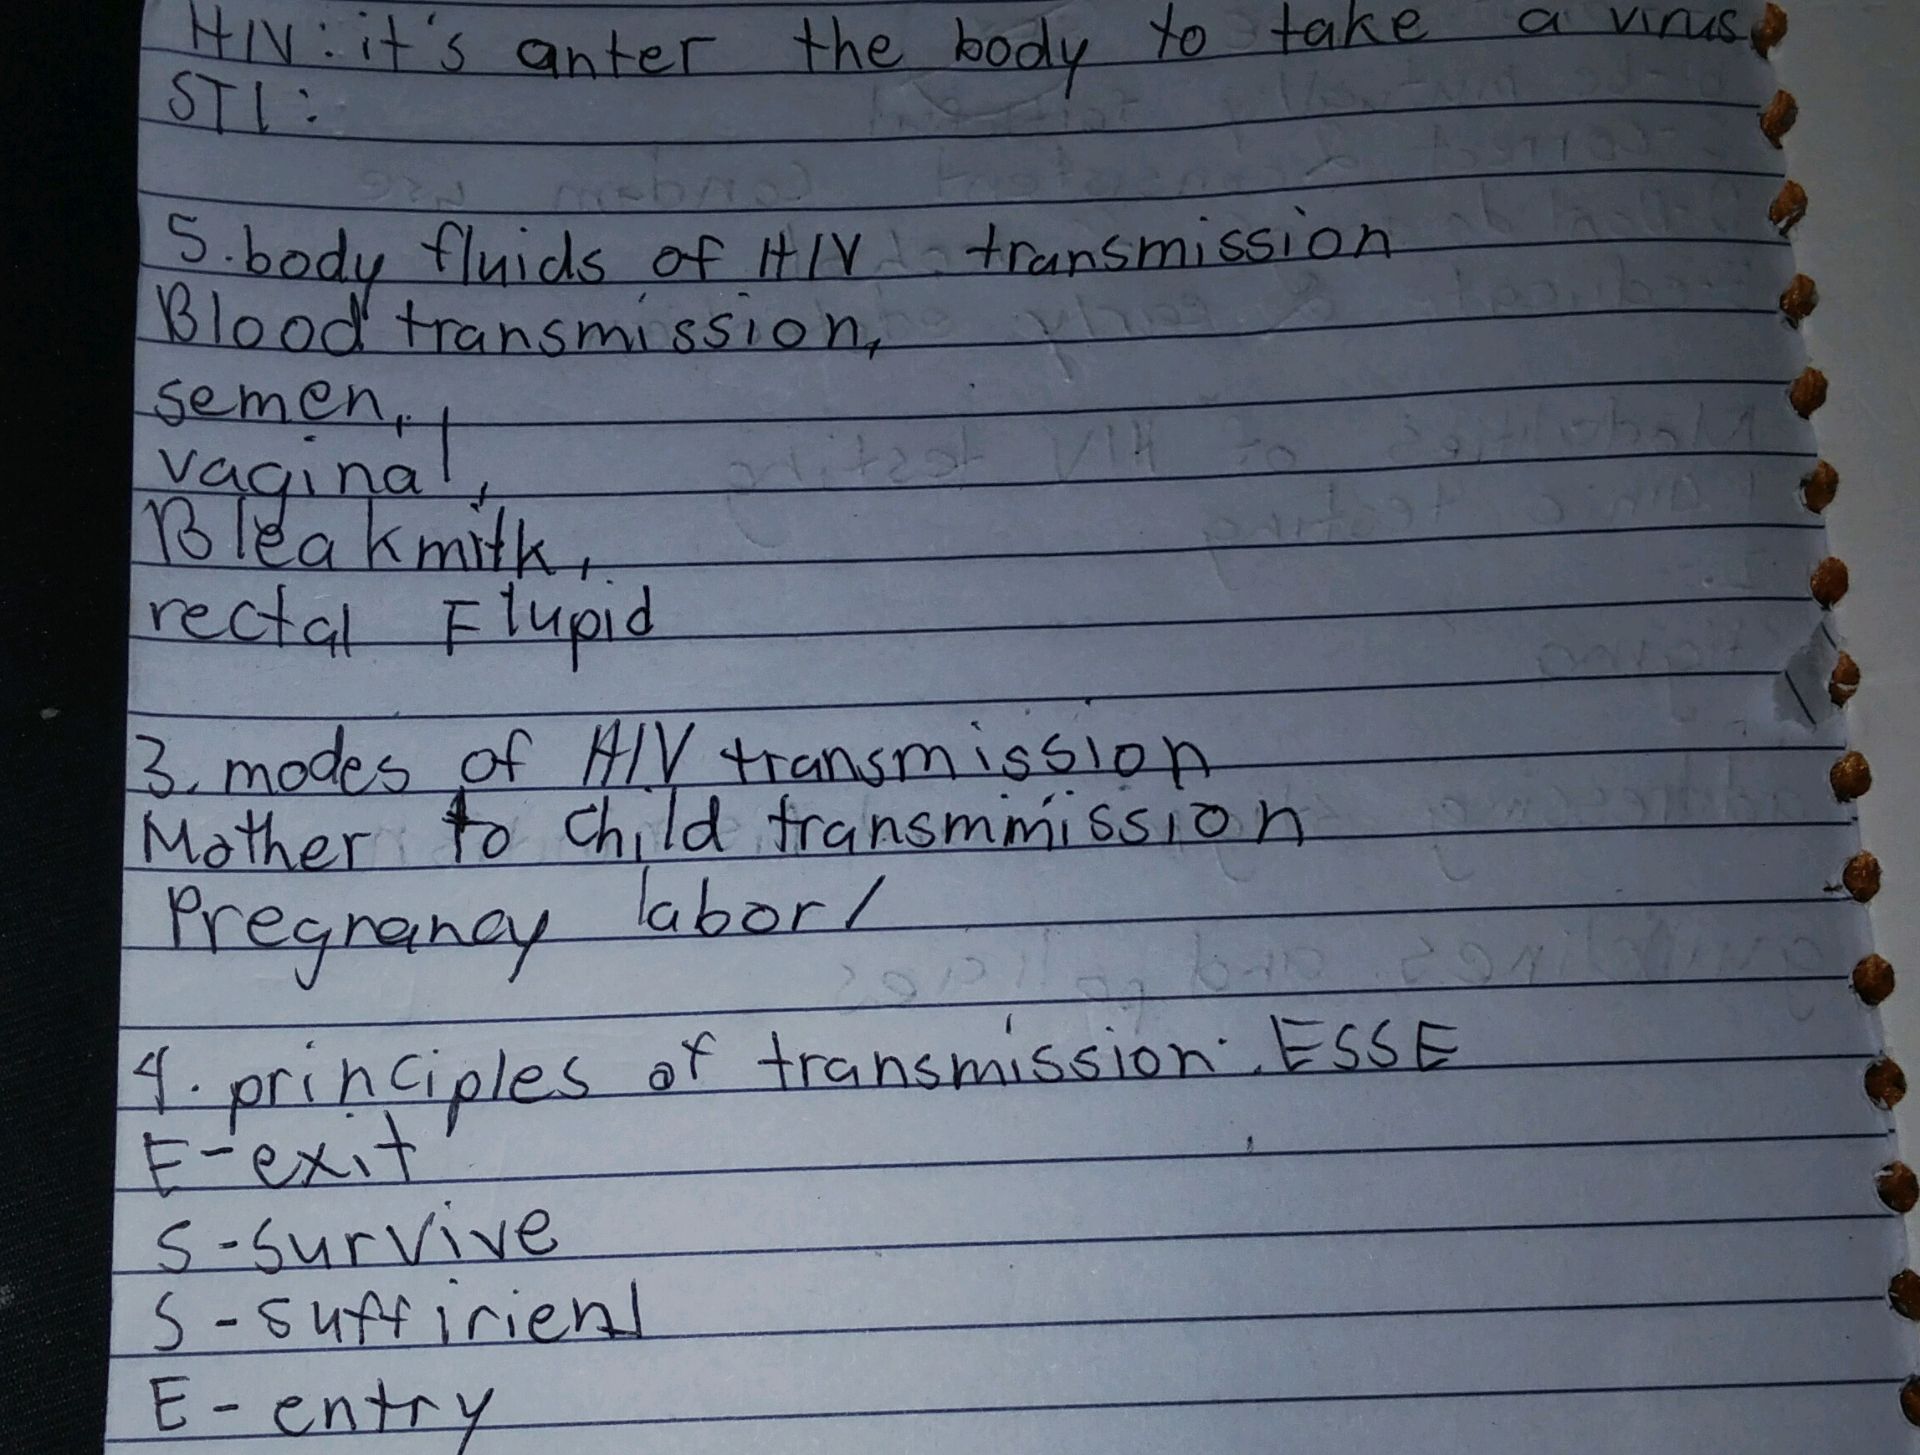 HIV: it's anter the body to take a virus
STI:
5. body fluids of HIV transmission
Blood transmission,
semen,
vaginal,
Bleakmilk,
rectal Flupid
3. modes of HIV transmission
Mother to child transmmission
Pregnancy labor/
4. principles of transmission. ESSE
E-exit
S-survive
S-suffirient
E-entry